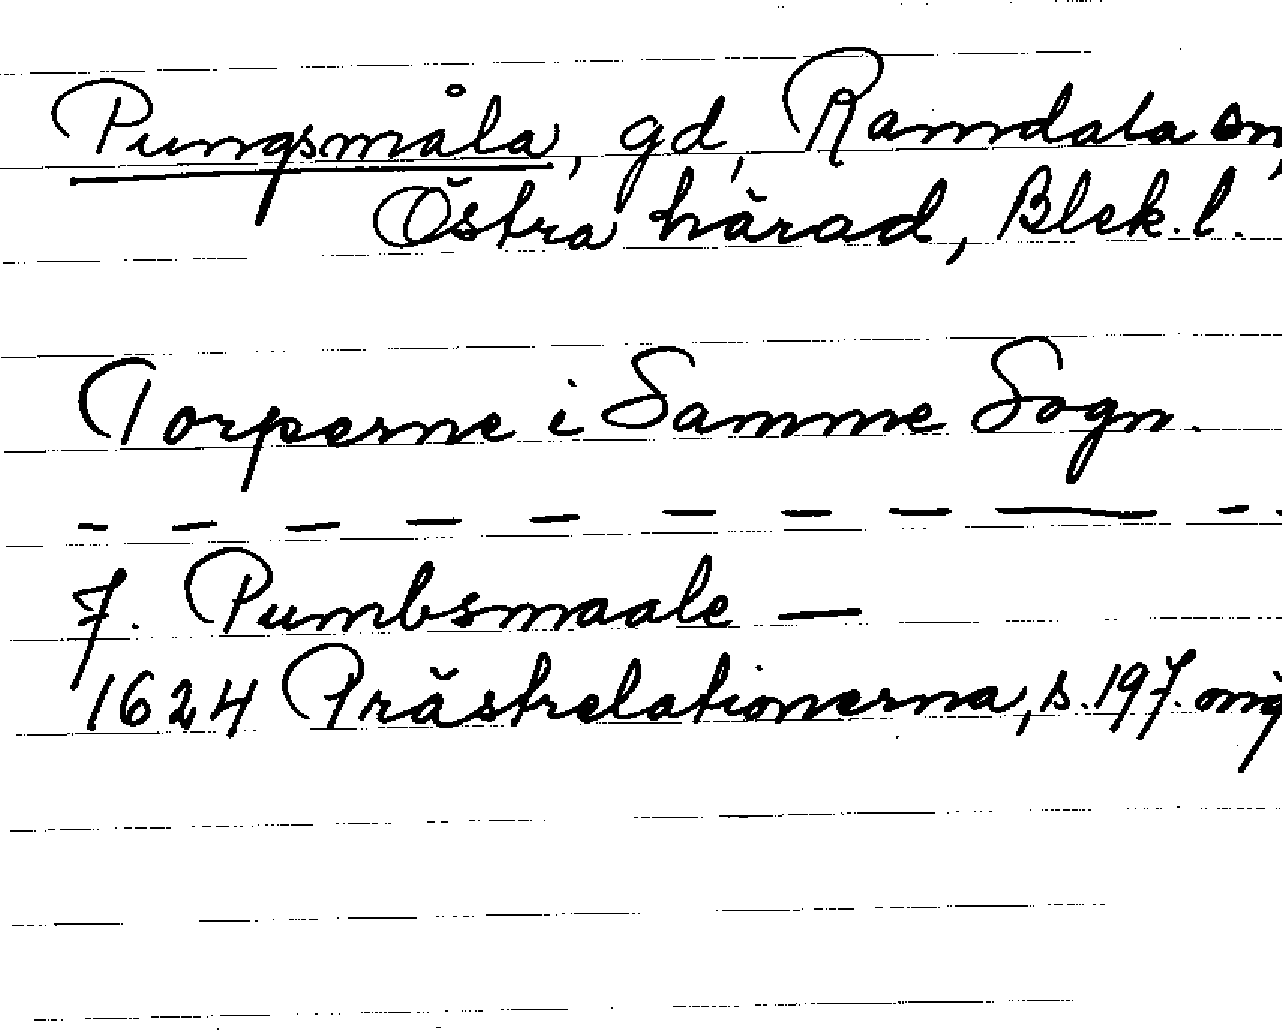 Pungsmåla, gd, Ramdala sn,
Östra härad, Blek. l.
Torperne i Samme Sogn.
- - - - - - - - - -
7. Pumbsmaale —
1624 Prästrelationerna, s. 197. orig